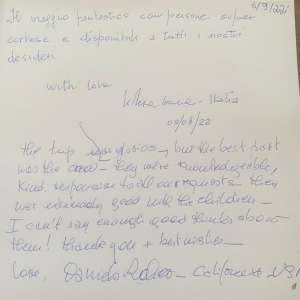 6/9/22
Il viaggio fantastico con persone super
cortese e disponibili a tutti i nostri
desideri
with love
Italia
09/08/22
the trip was glorious, but the best part
was the crew - they were knowledgeable,
kind, responsive to all our requests - they
were extremely good with the children -
I can't say enough good things about
them! thank you + best wishes -
Love,